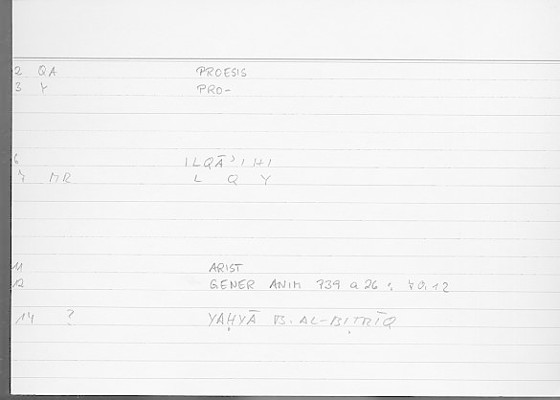 2 QA PROESIS
3 Y PRO-
6 ILQĀʾIHI
7 MR L Q Y
11 ARIST
12 GENER ANIM 739 a 26 : 70,12
14 ? YAḤYĀ B. AL-BIṬRĪQ